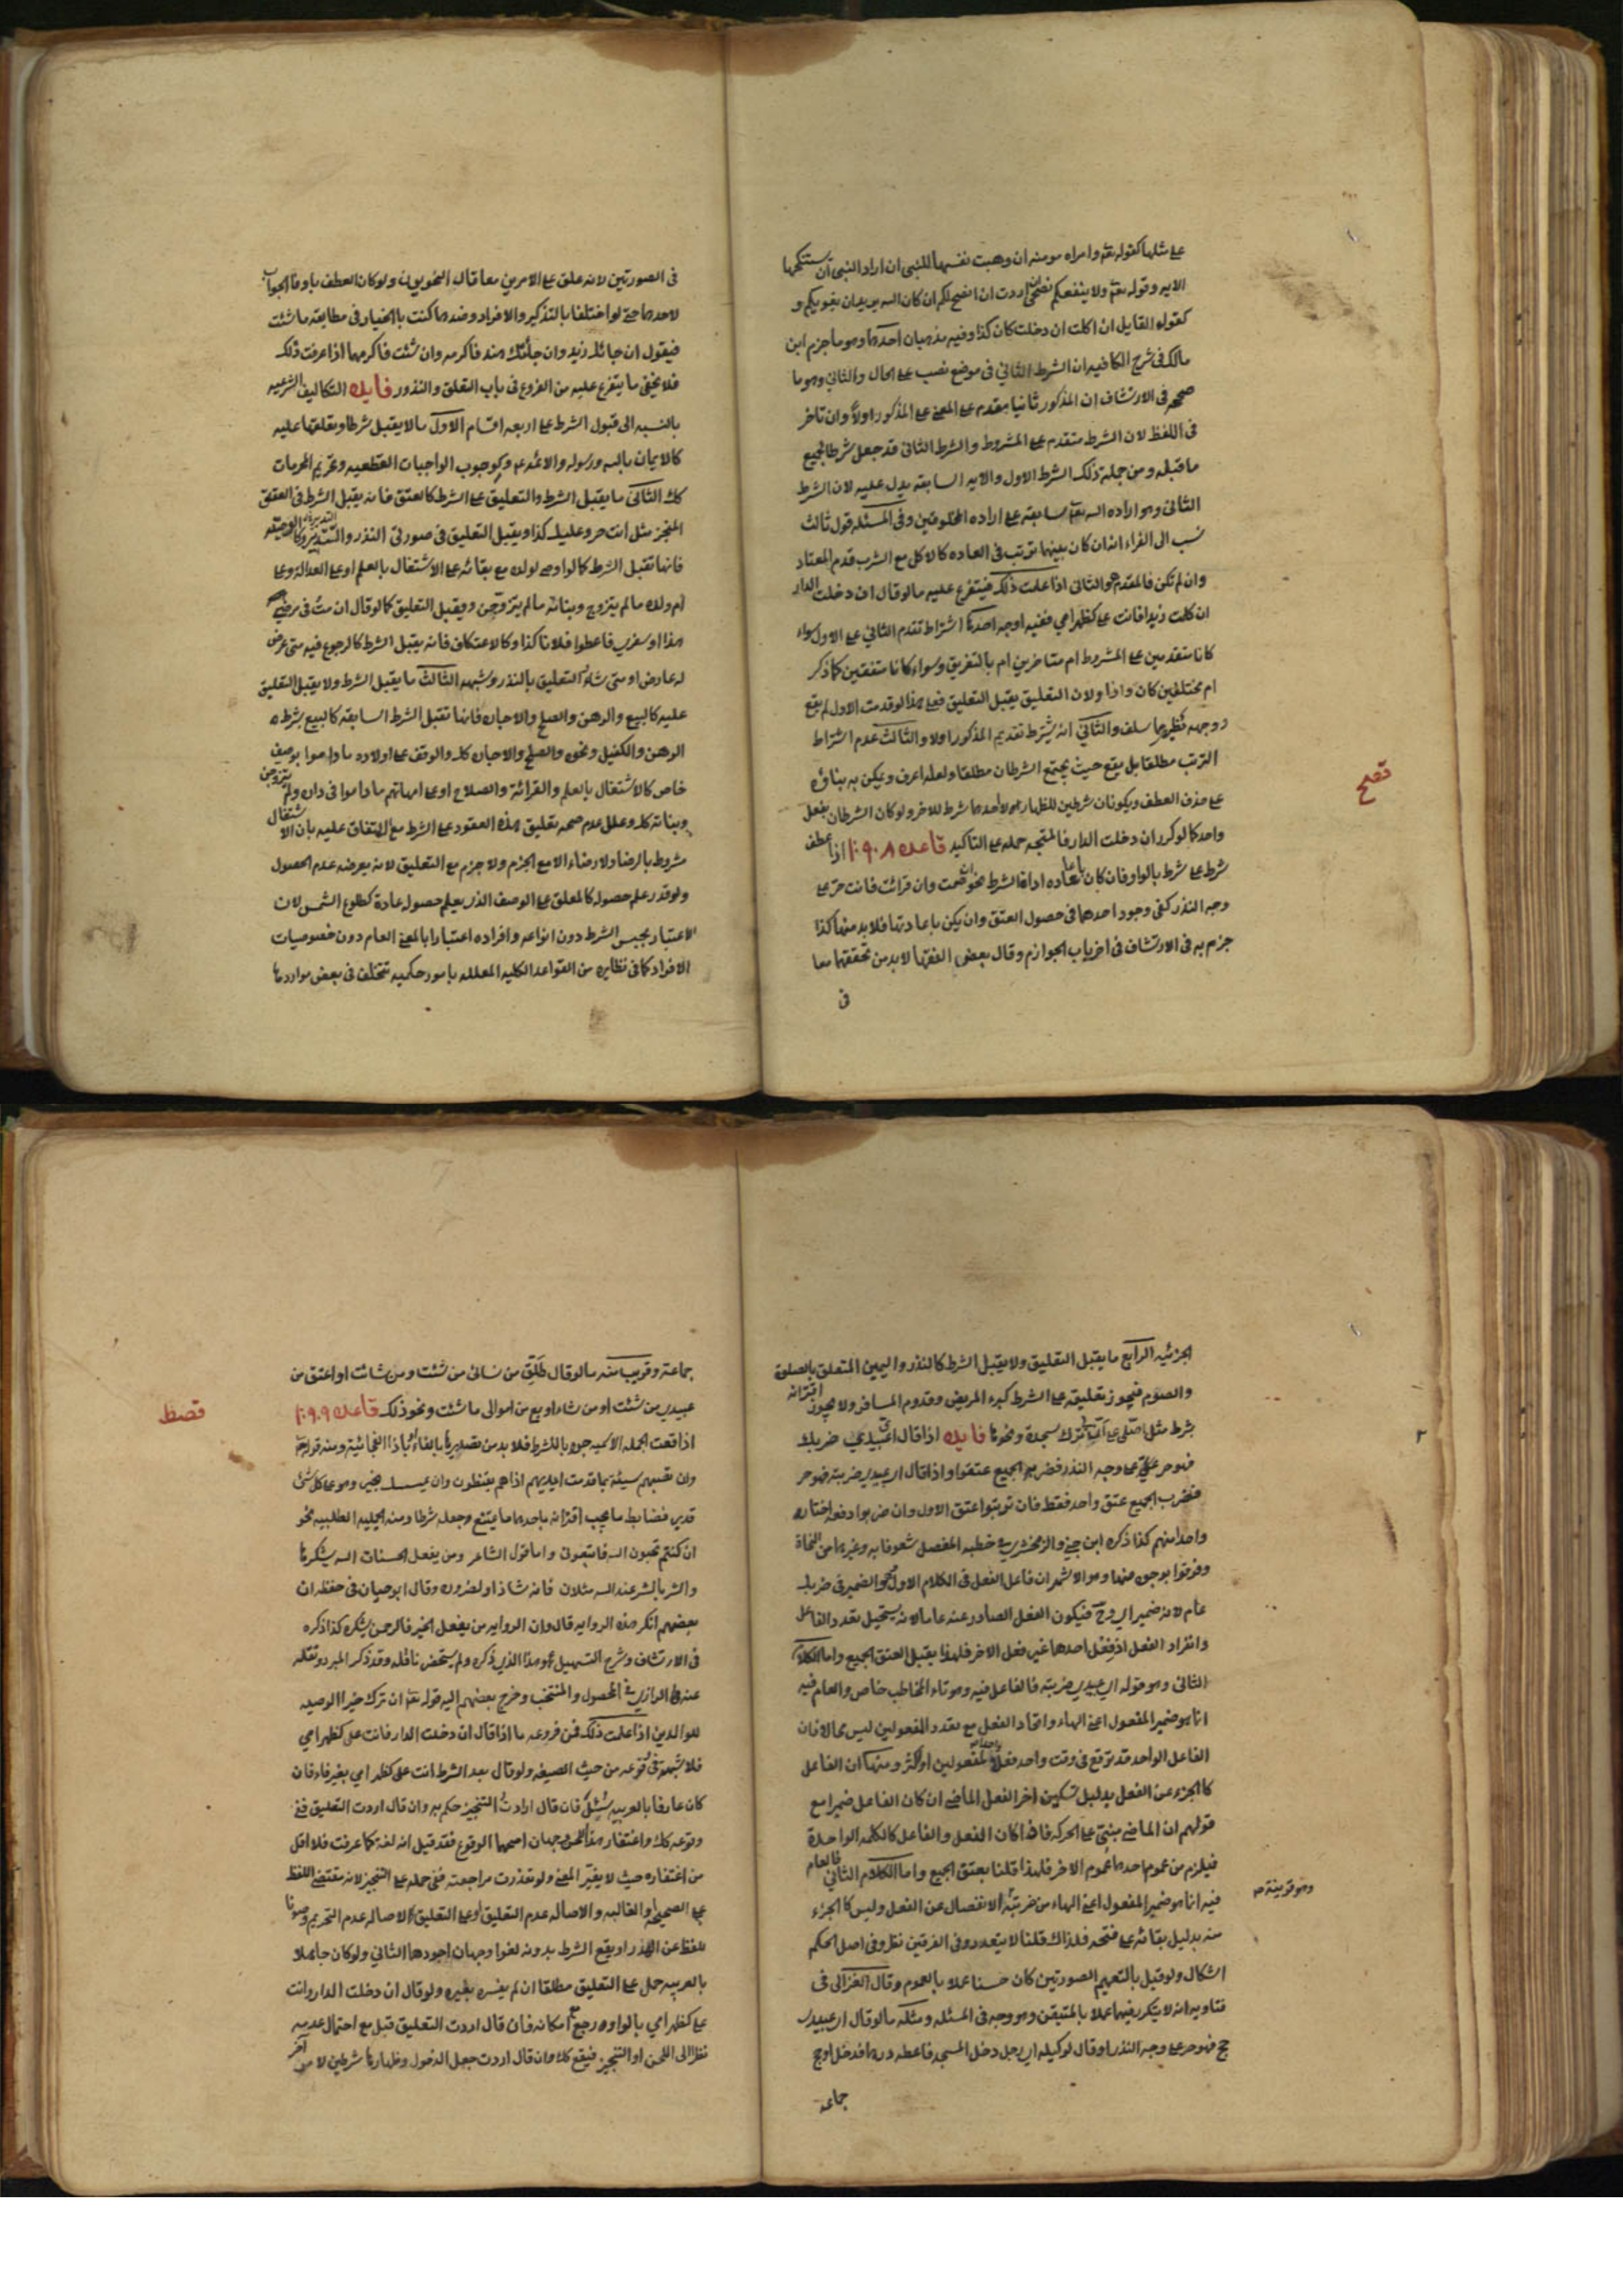 على مثلها كقوله تعم وامراه مومنه ان وهبت نفسها للنبي ان اراد النبي ان يستنكحها
الايه وقوله تعم ولا ينفعكم نصحي ان اردت ان انصح لكم ان كان الله يريد ان يغويكم و
كقول القايل ان اكلت ان دخلت كان كذا وفيه مذهبان احدهما وهو ما جزم ابن
مالك في شرح الكافيه ان الشرط الثاني في موضع نصب على الحال والثاني وهو ما
صححه في الارتشاف ان المذكور ثانيا مقدم على المعنى على المذكور اولا وان تاخر
في اللفظ لان الشرط متقدم على المشروط والشرط الثاني قد جعل شرطا لجميع
ما قبله ومن جملة ذلك الشرط الاول والايه السابقه يدل عليه لان الشرط
الثاني وهو اراده الله تعم سابقه على اراده المخلوقين وفي المسئله قول ثالث
نسب الى الفراء انه ان كان بينهما ترتيب في العاده كالاكل مع الشرب قدم المعتاد
وان لم تكن فالمقدم هو الثاني اذا علمت ذلك فيتفرع عليه ما لو قال ان دخلت الدار
ان كلمت زيدا فانت على كظهر امي ففيه اوجه احدها اشتراط تقدم الثاني على الاول سواء
كانا متقدمين على المشروط ام متاخرين ام بالتفريق وسواء كانا متفقين كما ذكر
ام مختلفين كان واذا ولان التعليق يقبل التعليق فعلى هذا لو قدمت الاول لم يقع
ووجهه نظير ما سلف والثاني انه يشترط تقديم المذكور اولا والثالث عدم اشتراط
الترتب مطلقا بل يقع حيث يجتمع الشرطان مطلقا ولعله اعرف ويمكن به بناؤه
على حذف العطف ويكونان شرطين للظهار لا احدهما شرط للاخر ولو كان الشرطان بفعل
واحد كما لو كرر ان دخلت الدار فالمتجه حمله على التاكيد قاعده ١٠٩٠٨ اذا عطف
شرط على شرط بالواو فان كان باعاده اداة الشرط نحو ان صمت وان قرات فانت حر على
وجه النذر كفى وجود احدهما في حصول العتق وان يكن باعادتها فلابد منهما كذا
جزم به في الارتشاف في اخر باب الجوازم وقال بعض الفقها لابد من تحققهما معا
في
قصح
في الصورتين لانه علق على الامرين معا قال النحويون ولو كان العطف باو فالجواب
لاحدهما حتى لو اختلفا بالتذكير والافراد وضدهما كنت بالخيار في مطابقه ما شئت
فيقول ان جائك زيد وان جائتك هند فاكرمه وان شئت فاكرمها اذا عرفت ذلك
فلا يخفى ما يتفرع عليه من الفروع في باب التعلق والنذور فايده التكاليف الشرعيه
بالنسبه الى قبول الشرط على اربعه اقسام الاول ما لا يقبل شرطا ويعلقها عليه
كالايمان بالله ورسوله والائمه ع وكوجوب الواجبات القطعيه وتحريم المحرمات
كك الثاني ما يقبل الشرط والتعليق على الشرط كالعتق فانه يقبل الشرط في العتق
المنجز مثل انت حر وعليك كذا ويقبل التعليق في صورتي النذر والتدبير وكالوصيه
فانها تقبل الشرط كما لو اوصى لولده مع بقائه على الاشتغال بالعلم او على العداله وعلى
ام ولده ما لم يتزوج وبناته ما لم يتزوجن ويقبل التعليق كما لو قال ان مت في مرضي
هذا او سفري فاعطوا فلانا كذا وكالاعتكاف فانه يقبل الشرط كالرجوع فيه متى عرض
له عارض او متى شاء التعليق بالنذر وشبهه الثالث ما يقبل الشرط ولا يقبل التعليق
عليه كالبيع والرهن والصلح والاجاره فانها تقبل الشرط السابقه كالبيع بشرط
الرهن والكفيل ونحوه والصلح والاجاره كك والوقف على اولاده ما داموا بوصف
خاص كالاشتغال بالعلم والقرائة والصلاح او على امهاتهم ما داموا في داره ولم يتزوجن
وبناته كك وعلل عدم صحه تعليق هذه العقود على الشرط مع الاتفاق عليه بان الاشتغال
مشروط بالرضا ولا رضاء الا مع الجزم ولا جزم مع التعليق لانه يعرضه عدم الحصول
ولو قدر علم حصوله كالمعلق على الوصف الذي يعلم حصوله عادة كطلوع الشمس لان
الاعتبار بجنس الشرط دون انواعه وافراده اعتبارا بالمعنى العام دون خصوصيات
الافراد كما في نظايره من القواعد الكليه المعلله بامور حكميه تتخلف في بعض مواردها
الجزئيه الرابع ما يقبل التعليق ولا يقبل الشرط كالنذر واليمين المتعلق بالصلوة
والصوم فيجوز تعليقه على الشرط كبرء المريض وقدوم المسافر ولا يجوز اقترانه
بشرط مثل اصلى على انى اترك سجدة ونحوها فايده اذا قال اى عبيدي ضربك
فهو حر على وجه النذر فضربه الجميع عتقوا واذا قال اى عبيدي ضربته فهو حر
فضرب الجميع عتق واحد فقط فان ترتبوا عتق الاول وان ضربوا دفعه اختار
واحدا منهم كذا ذكره ابن جني والزمخشري في خطبه المفصل شعوفا به وغيرهما من النحاة
وفرقوا بوجوه منها وهو الاشهر ان فاعل الفعل في الكلام الاول وهو الضمير في ضربك
عام لانه ضمير اى وح فيكون الفعل الصادر عنه عاما لانه يستحيل تعدد الفاعل
وانفراد الفعل اذ فعل احدهما غير فعل الاخر فلهذا يقبل العتق الجميع واما الكلام
الثاني وهو قوله اى عبيدي ضربته فالفاعل فيه وهو تاء المخاطب خاص والعام فيه
انما هو ضمير المفعول اعنى الهاء واتحاد الفعل مع تعدد المفعولين ليس محالا فان
الفاعل الواحد قد يوقع في وقت واحد فعلا واحدا بمفعولين او اكثر ومنها ان الفاعل
كالجزء من الفعل بدليل تسكين اخر الفعل الماضي ان كان الفاعل ضميرا مع
قولهم ان الماضي مبني على الحركه فاذا كان الفعل والفاعل كالكلمه الواحدة
فيلزم من عموم احدهما عموم الاخر فلهذا قلنا بعتق الجميع واما الكلام الثاني فالعام
فيه انما هو ضمير المفعول اعنى الهاء من ضربته الانفصال عن الفعل وليس كالجزء
منه بدليل بقائه على فتحه فلذلك قلنا لا يتعدد وفي الفرقين نظر وفي اصل الحكم
اشكال ولو قيل بالتعميم الصورتين كان حسنا عملا بالعموم وقال الغزالي في
فتاويه انه لا يتكرر فيهما عملا بالمتيقن وهو وجه في المسئله ومثله ما لو قال اى عبيدي
حج فهو حر على وجه النذر او قال لوكيله اى رجل دخل المسجد فاعطه درهما فدخل او حج
جماعه
جماعة وقريب منه ما لو قال طلق من نسائي من شئت ومن شاءت او اعتق من
عبيدي من شئت او من شاء او بع من اموالى ما شئت ونحو ذلك قاعده ١٠٩٠٩
قصط
اذا وقعت الجمله الاسميه جوابا للشرط فلا بد من تصديرها بالفاء او باذا الفجائيه ومنه قوله تعم
وان تصبهم سيئة بما قدمت ايديهم اذا هم يقنطون وان يمسسك بخير وهو على كل شئ
قدير فضابط ما يجب اقترانه باحدهما ما يمتنع وجعله شرطا ومنه الجليه الطلبيه نحو
ان كنتم تحبون الله فاتبعوني واما قول الشاعر ومن يفعل الحسنات الله يشكرها
والشر بالشر عند الله مثلان فانه شاذ او لضروره وقال ابو حيان في حفظه ان
بعضهم انكر هذه الروايه قال وان الروايه من يفعل الخير فالرحمن يشكره كذا ذكره
في الارتشاف وشرح التسهيل وهو هذا الذي ذكره ولم يستحضر ناقله وقد ذكر المبرد ونقله
عنه الرازي في المحصول والمنتخب وخرج بعضهم اليه قوله تعم ان ترك خيرا الوصيه
للوالدين اذا علمت ذلك فمن فروعه ما اذا قال ان دخلت الدار فانت على كظهر امي
فلا شبهة في وقوعه من حيث الصيغه ولو قال بعد الشرط انت على كظهر امي بغير فاء فان
كان عارفا بالعربيه سئل فان قال اردت التنجيز حكم به وان قال اردت التعليق ففي
وقوعه كك واغتفار هذا اللحن وجهان اصحهما الوقوع فقد قيل انه لغه كما عرفت فلا اقل
من اغتفاره حيث لا يغير المعنى ولو تعذرت مراجعته ففي حمله على التنجيز لانه مقتضى اللفظ
على الصحيحه والغالبه والاصاله عدم التعليق او على التعليق لاصاله عدم التحريم وصونا
للفظ عن الهدر او يقع الشرط بدونه لغوا وجهان اجودهما الثاني ولو كان جاهلا
بالعربيه حمل على التعليق مطلقا ان لم يفسره بغيره ولو قال ان دخلت الدار وانت
على كظهر امي بالواو رجع مع امكانه فان قال اردت التعليق قبل مع احتمال عدمه
نظرا الى اللحن او التنجيز فيقع كك وان قال اردت جعل الدخول وظهارها شرطين لامر آخر